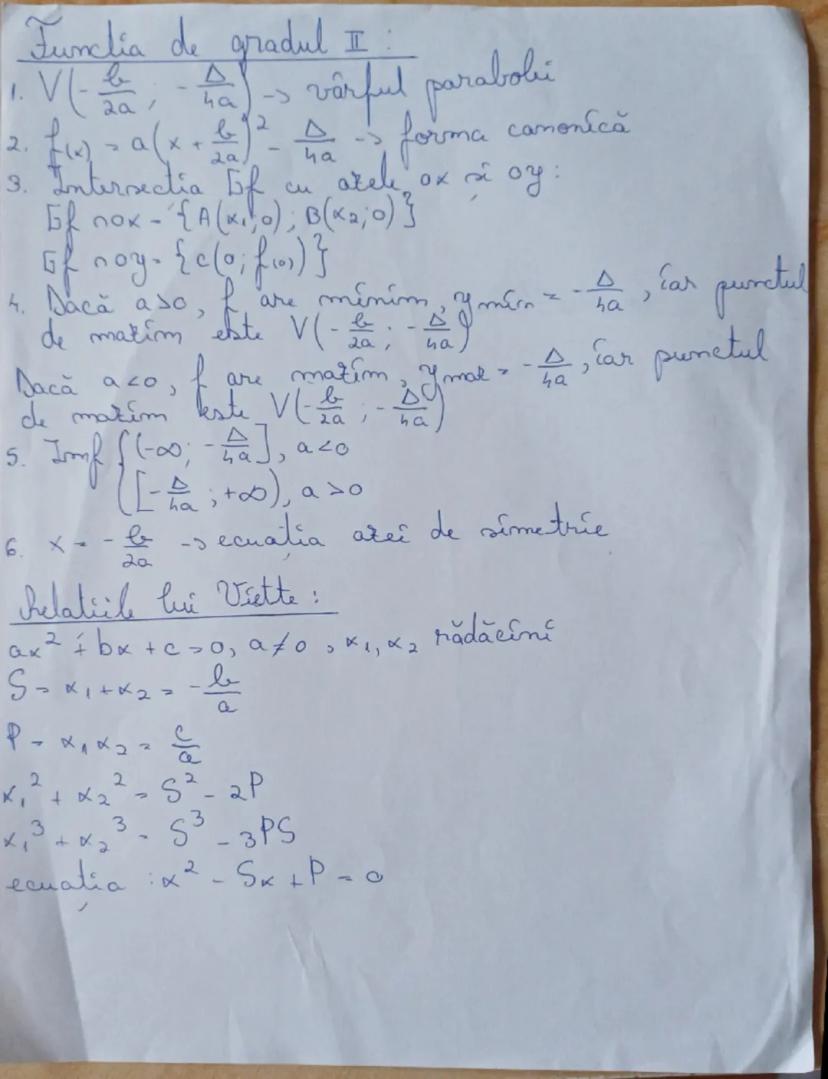 Funcția de gradul II :
1. V(-b/2a ; -Δ/4a) -> vârful parabolei
2. f(x) = a(x + b/2a)² - Δ/4a -> forma canonică
3. Intersectia Gf cu axele ox și oy :
Gf ∩ ox = {A(x₁;0) ; B(x₂;0)}
Gf ∩ oy = {C(0 ; f(0))}
4. Dacă a>0, f are minim, y min = -Δ/4a , iar punctul
de maxim este V(-b/2a ; -Δ/4a)
Dacă a<0, f are maxim, y max = -Δ/4a , iar punctul
de maxim este V(-b/2a ; -Δ/4a)
5. Imf { (-∞ ; -Δ/4a], a<0
[-Δ/4a ; +∞), a>0
6. x = -b/2a -> ecuația axei de simetrie
Relatiile lui Viette :
ax² + bx + c = 0, a≠0, x₁, x₂ rădăcini
S = x₁ + x₂ = -b/a
P = x₁x₂ = c/a
x₁² + x₂² = S² - 2P
x₁³ + x₂³ = S³ - 3PS
ecuația : x² - Sx + P = 0